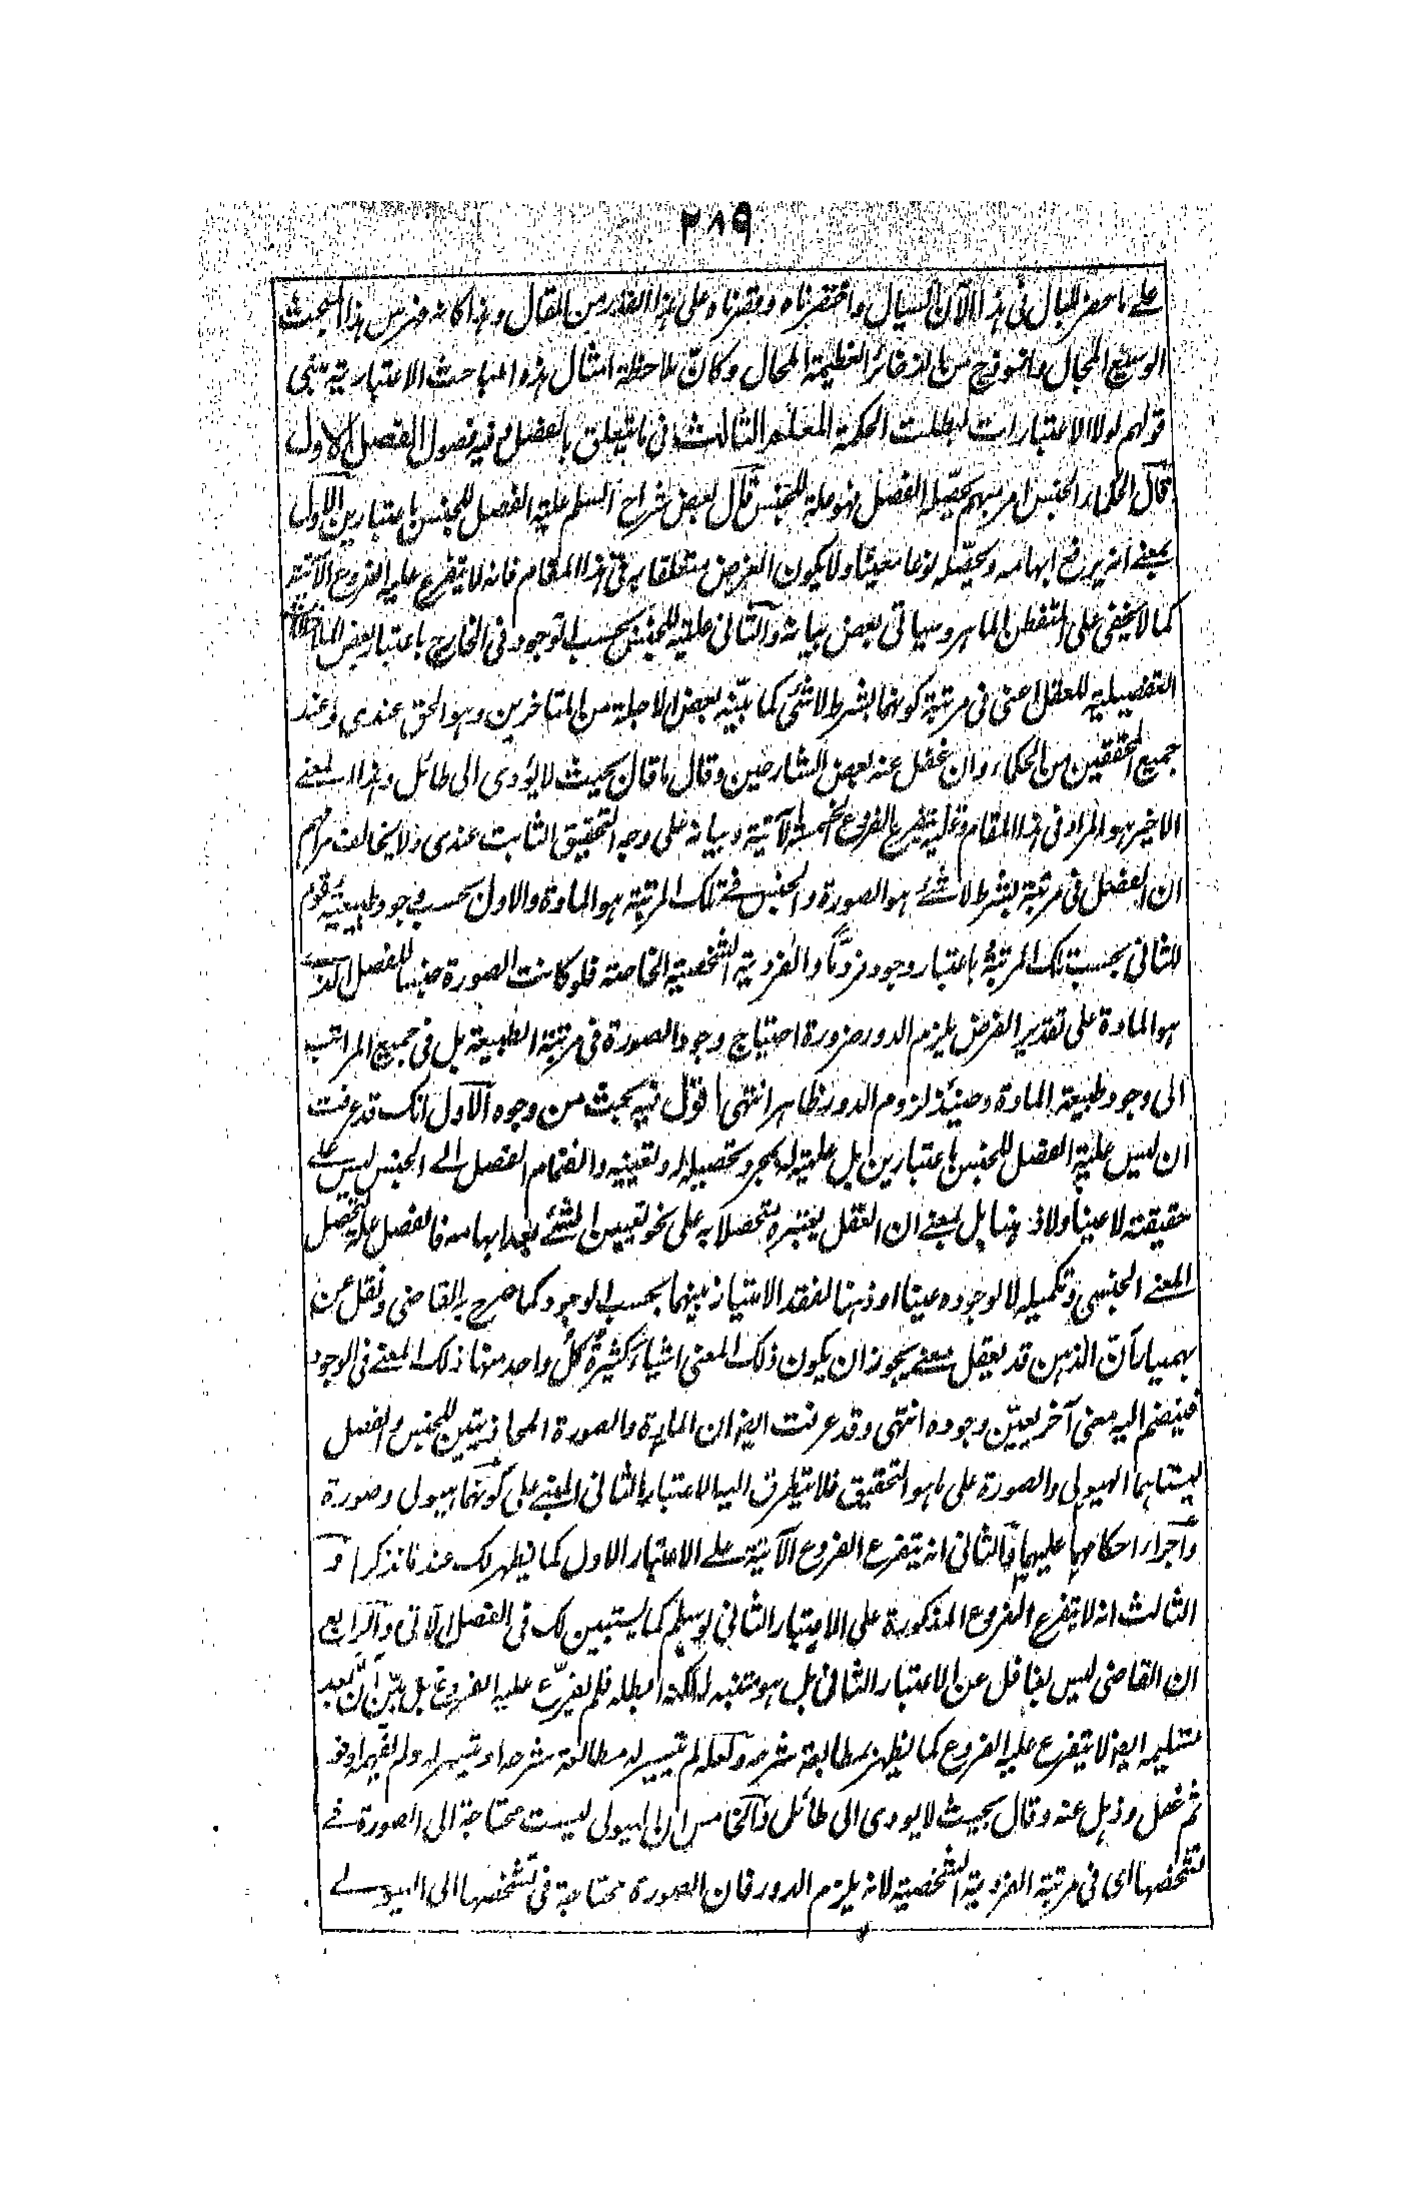 ٢٨٩
على ما حضر للبال فى هذا الآن السيال واختصرناه وقصرناه على هذا القدر من المقال وهذا كانه فهرس هذا المبحث
الوسيع المجال وانموذج من الذخائر العظيمة المحال وكان ملاحظة امثال هذه المباحث الاعتبارية تنبى
قولهم لولا الاعتبارات لبطلت الحكمة المعلم الثالث فى ما يتعلق بالفصل وفيه فصول الفصل الاول
قال الحكماء الجنس امر مبهم يحصّله الفصل فهو علة للجنس قال بعض شراح السلم علية الفصل للجنس باعتبارين الاول
بمعنے انه يرفع ابهامه ويحصّله نوعا معينا ولا يكون الغرض متعلقا به فى هذا المقام فانه لا يتفرع عليه الفروع الآتية
كما لا يخفى على المتفطن الماهر وسياتى بعض بيانه والثانى علتيه للجنس بحسب الوجود فى الخارج باعتبار بعض الملاحظات
التفصيلية للعقل اعنى فى مرتبة كونهما بشرط لا شئ كما بيّنه بعض الاجلة من المتاخرين وهو الحق عندى وعند
جميع المحققين من الحكماء وان غفل عنه بعض الشارحين وقال ما قال بحيث لا يؤدى الى طائل وهذا المعنے
الاخير هو المراد فى هذا المقام وعليه يتفرع الفروع الخمسة الآتية وبيانه على وجه التحقيق الثابت عندى ولا يخالف مرامهم
ان الفصل فى مرتبة بشرط لا شئے هو الصورة والجنس فے تلك المرتبة هو المادة والاول بحسب وجود طبيعته مقوم
للثانى بحسب تلك المرتبة باعتبار وجود فرد ما والفردية الشخصية الخاصة فلو كانت الصورة جنسا للفصل الذے
هو المادة على تقدير الفرض يلزم الدور ضرورة احتياج وجود الصورة فى مرتبة الطبيعة بل فى جميع المراتب
الى وجود طبيعة المادة وحينئذ لزوم الدور ظاهر انتهى اقول فيه بحث من وجوه الاول انك قد عرفت
ان ليس علية الفصل للجنس باعتبارين بل علتيه له بمجرد تحصيله له وتعيينه وانضمام الفصل الے الجنس ليس على
حقيقته لا عينا ولا ذهنا بل بمعنے ان العقل يعتبره متحصلا به على نحو تعيين الشئے بعد ابهامه فالفصل علة لتحصل
المعنے الجنسى وتكميله لا لوجوده عينا او ذهنا لفقد الامتياز بينهما بحسب الوجود كما صرح به القاضى ونقل عن
بهمنيار ان الذهن قد يعقل معنے يجوز ان يكون ذلك المعنى اشياءً كثيرةً كلُ واحد منها ذلك المعنے فى الوجود
فينضم اليه معنى آخر يعيّن وجوده انتهى وقد عرفت ايضا ان المادة والصورة المحاذيتين للجنس والفصل
ليستا هما الهيولى والصورة على ما هو التحقيق فلا يتطرق اليها الاعتبار الثانى المبنے على كونهما هيولى وصورة
واجراء احكامهما عليهما والثانى انه يتفرع الفروع الآتية علے الاعتبار الاول كما يظهر لك عند ما نذكرها و
الثالث انه لا يتفرع الفروع المذكورة على الاعتبار الثانى لو سلم كما يستبين لك فى الفصل الآتى والرابع
ان القاضى ليس بغافل عن الاعتبار الثانى بل هو متنبه له لكنه ابطله فلم يفرّع عليه الفروع بل بيّن ان بعد
تسليمه ايضا لا يتفرع عليه الفروع كما يظهر بمطالعة شرحه ولعله لم تيسير له مطالعة شرحه او تيسر له ولم يفهمه او فهم
ثم غفل وذهل عنه وقال بحيث لا يودى الى طائل والخامس ان الهيولى ليست محتاجة الى الصورة فے
تشخصها اى فى مرتبة الفردية الشخصية لانه يلزم الدور فان الصورة محتاجة فى تشخصها الى الهيولے